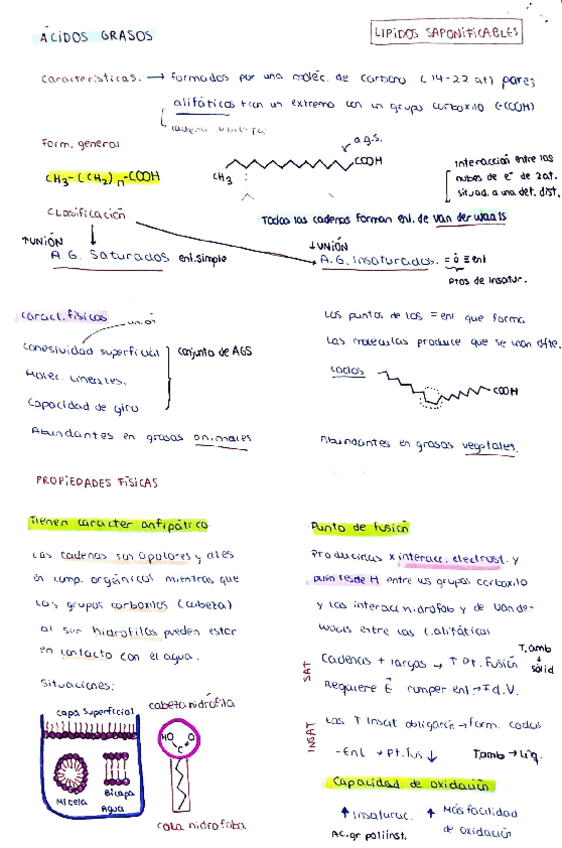 ÁCIDOS GRASOS
LIPIDOS SAPONIFICABLES
Características. → formados por una moléc. de carbono (14-22 at) pares
alifáticos + con un extremo con un grupo carboxilo (-COOH)
Form. general
a.g.s.
CH3-(CH2)n-COOH
CH3
COOH
Interacción entre las
nubes de e- de 2at.
situad. a una det. dist.
Clasificación
Todas las cadenas forman enl. de van der waals
↑UNIÓN
A.G. Saturados enl.simple
↓UNIÓN
A.G. Insaturados. = ó ≡ enl
ptos de insatur.
Caract. físicas
unión
Cohesividad superficial
conjunto de AGS
Molec. lineales.
Capacidad de giro
Abundantes en grasas animales
Los puntos de los = enl que forma
Las moléculas produce que se unan difte.
codos
COOH
Abundantes en grasas vegetales.
PROPIEDADES FÍSICAS
Tienen caracter anfipático
Las cadenas son apolares y
en comp. orgánicos mientras que
los grupos carboxilos (cabeza)
al ser hidrofilos pueden estar
en contacto con el agua.
Situaciones:
capa superficial
Micela
Bicapa
Agua
cabeza hidrófila
HO
O
C
cola hidrofoba
Punto de fusión
Producidas x interacc. electrost. y
puentes de H entre los grupos carboxilo
y las interacc hidrofob y de Van de-
Waals entre las c.alifáticas
SAT
Cadenas + largas → ↑ Pt. fusión
T.amb
↓
sólid
Requiere E romper enl → F d. V.
INSAT
Las ↑ Insat obligación → form. codos
-Enl → Pt. fus ↓
T.amb → líq.
Capacidad de oxidación
↑ Insaturac.
↑ Más facilidad
de oxidación
Ac.gr poliinst.